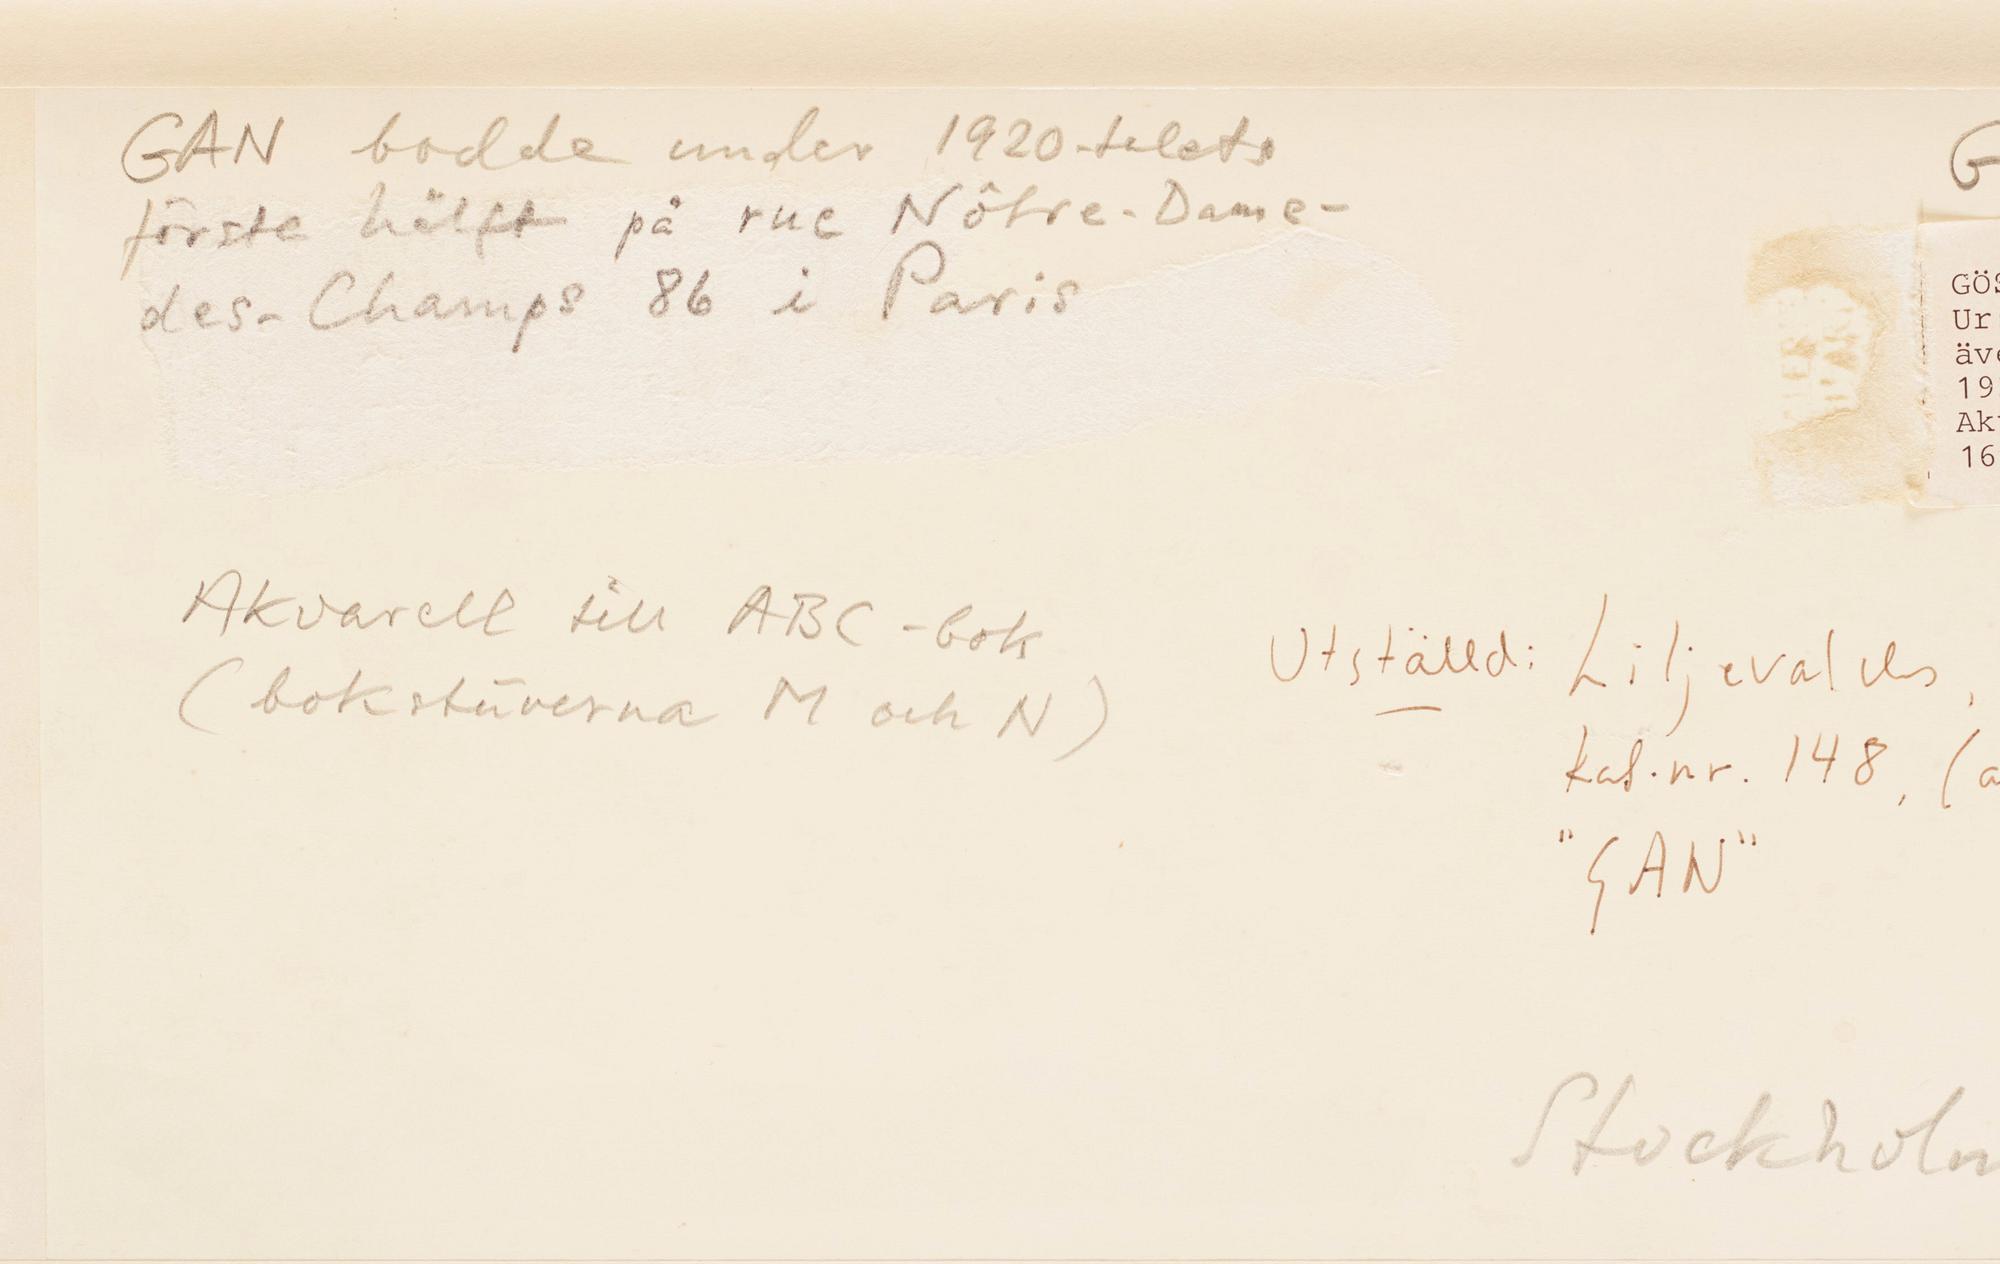 GAN bodde under 1920-talets
förste hälft på rue Nôtre-Dame-
des-Champs 86 i Paris
Akvarell till ABC-bok
(bokstäverna M och N)
G
GÖS
Ur
äve
19
Ak
16
Utställd: Liljevalchs,
kat.nr. 148, (a
"GAN"
Stockholm